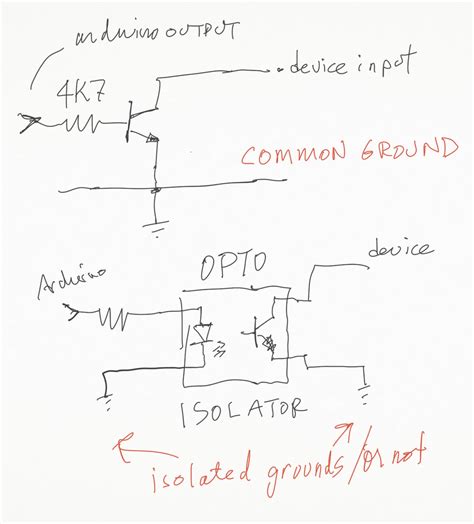 arduino OUTPUT
device input
4K7
COMMON GROUND
OPTO
device
Arduino
ISOLATOR
isolated grounds/or not